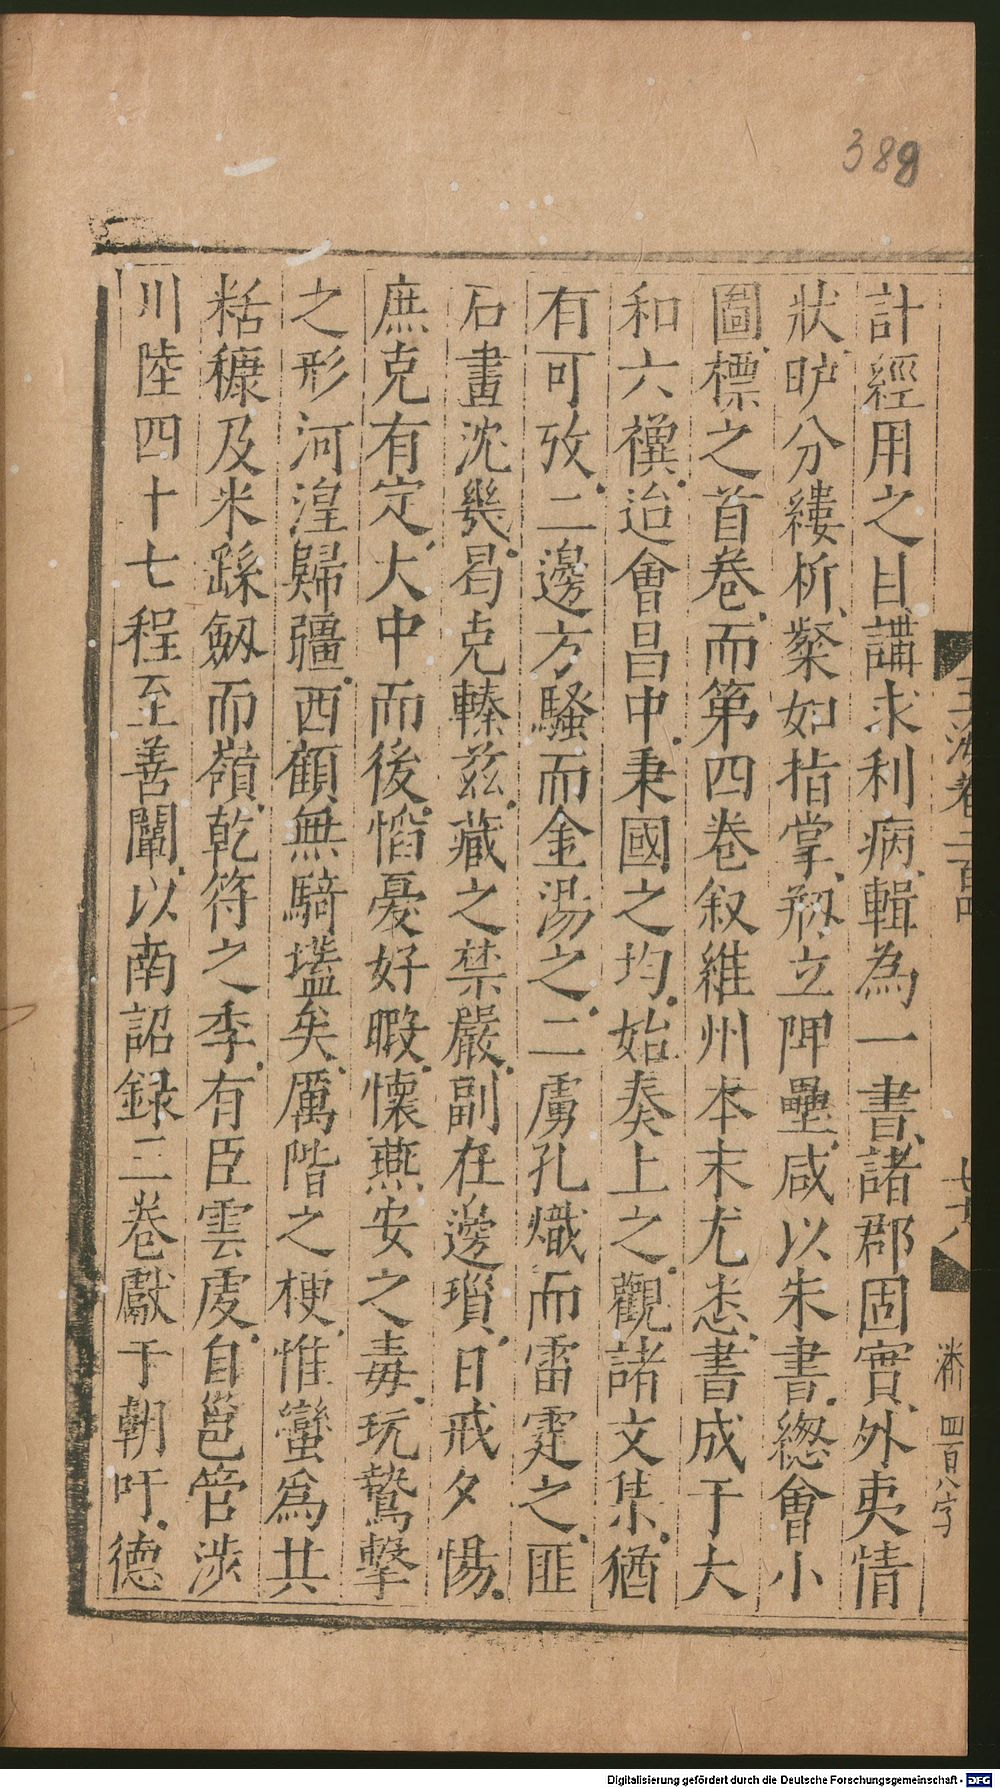 388
計經用之目講求利病輯為一書諸郡固實外夷情
狀昈分縷析粲如指掌剏立障壘咸以朱書緫會小
圖標之首卷而第四卷叙維州本末尤悉書成于大
和六禩迨會昌中秉國之均始奏上之觀諸文集猶
有可攷二邊方騷而金湯之二虜孔熾而雷霆之匪
石畫沈幾曷克臻兹藏之禁嚴副在邊瑣日戒夕惕
庶克有定大中而後慆憂好暇懷燕安之毒玩鷙擊
之形河湟歸疆西顧無騎壒矣厲階之梗惟蠻為共
粓穅及米蹂劔而嶺乾符之季有臣雲虔自邕管涉
川陸四十七程至善闡以南詔録三卷獻于朝吁德
玉海卷二百四
四百八字
Digitalisierung gefördert durch die Deutsche Forschungsgemeinschaft - DFG